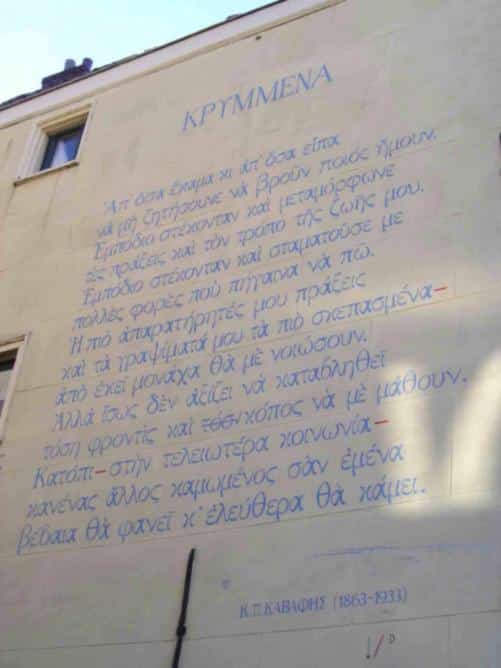 ΚΡΥΜΜΕΝΑ
Ἀπ' ὅσα ἔκαμα κι ἀπ' ὅσα εἶπα
νὰ μὴ ζητήσουνε νὰ βροῦν ποιὸς ἤμουν.
Ἐμπόδιο στέκονταν καὶ μεταμόρφωνε
τὲς πράξεις καὶ τὸν τρόπο τῆς ζωῆς μου.
Ἐμπόδιο στέκονταν καὶ σταματοῦσε με
πολλὲς φορὲς ποὺ πήγαινα νὰ πῶ.
Ἡ πιὸ ἀπαρατήρητές μου πράξεις
καὶ τὰ γραψίματά μου τὰ πιὸ σκεπασμένα—
ἀπὸ ἐκεῖ μονάχα θὰ μὲ νοιώσουν.
Ἀλλὰ ἴσως δὲν ἀξίζει νὰ καταβληθεῖ
τόση φροντὶς καὶ τόσος κόπος νὰ μὲ μάθουν.
Κατόπι—στὴν τελειωτέρα κοινωνία—
κανένας ἄλλος καμωμένος σὰν ἐμένα
βέβαια θὰ φανεῖ κ' ἐλεύθερα θὰ κάμει.
Κ.Π. ΚΑΒΑΦΗΣ (1863-1933)